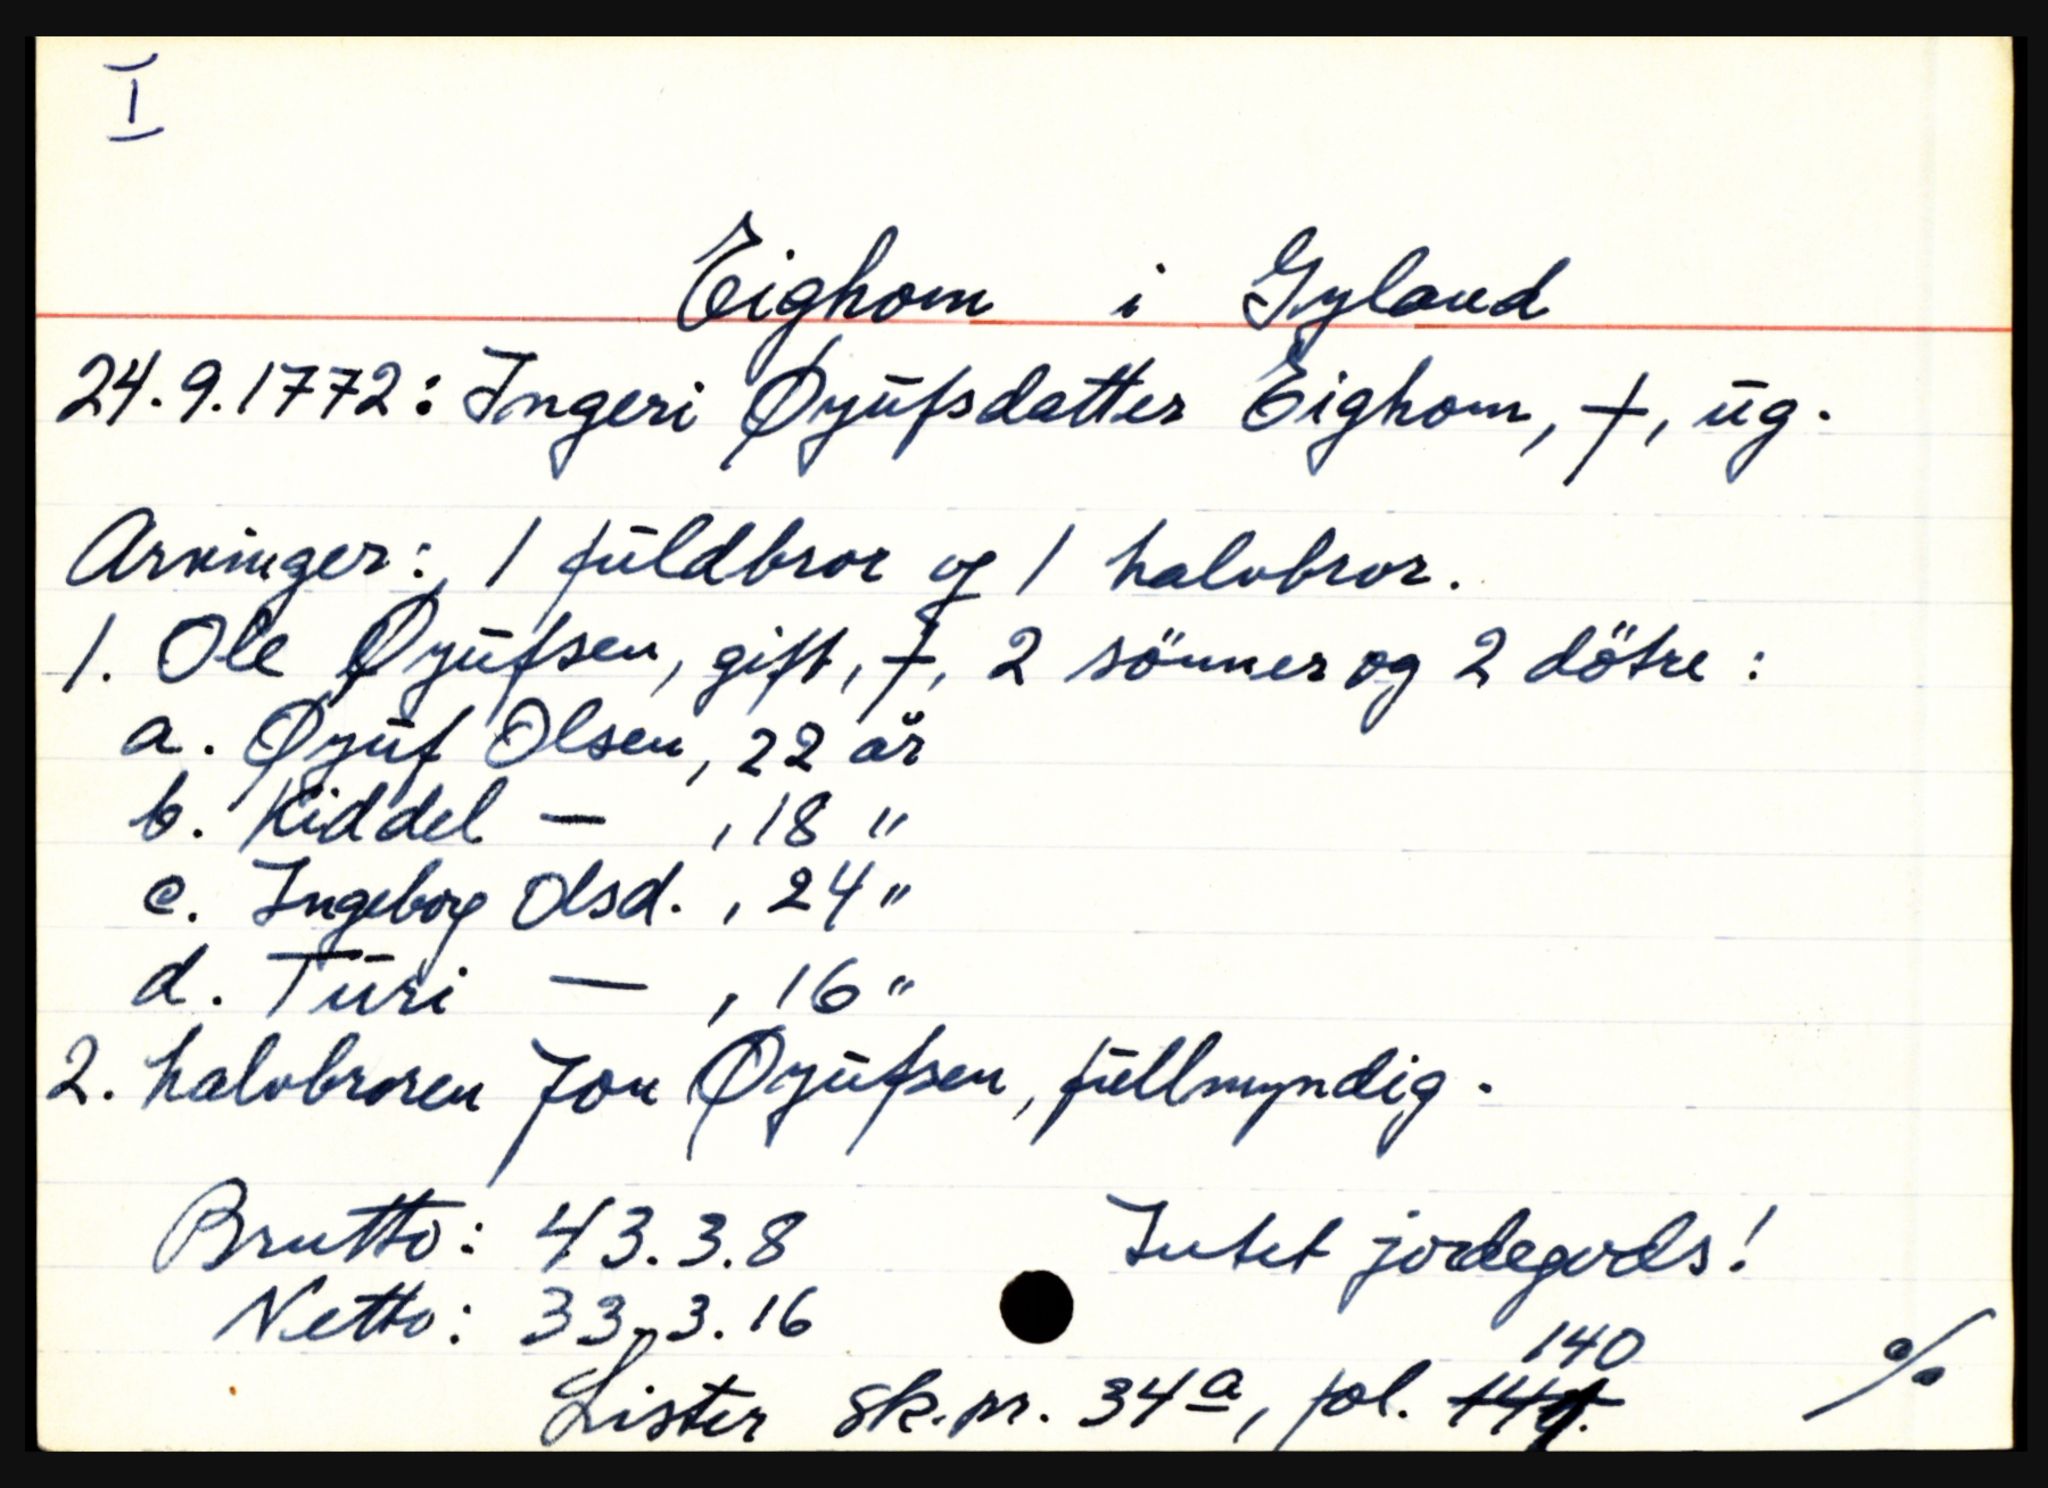 I
Eighom i Gyland
24.9.1772: Ingeri Øyufsdatter Eighom, †, ug.
Arvinger: 1 fuldbror og 1 halvbror.
1. Ole Øyufsen, gift, †, 2 sönner og 2 dötre:
a. Øyuf Olsen, 22 år
b. Kiddel — , 18 "
c. Ingeborg Olsd. , 24 "
d. Turi — , 16 "
2. halvbroren Jon Øyufsen, fullmyndig.
Brutto: 43.3.8 Intet jordegods!
Netto: 33.3.16
140
Lister sk.pr. 34a, fol. %